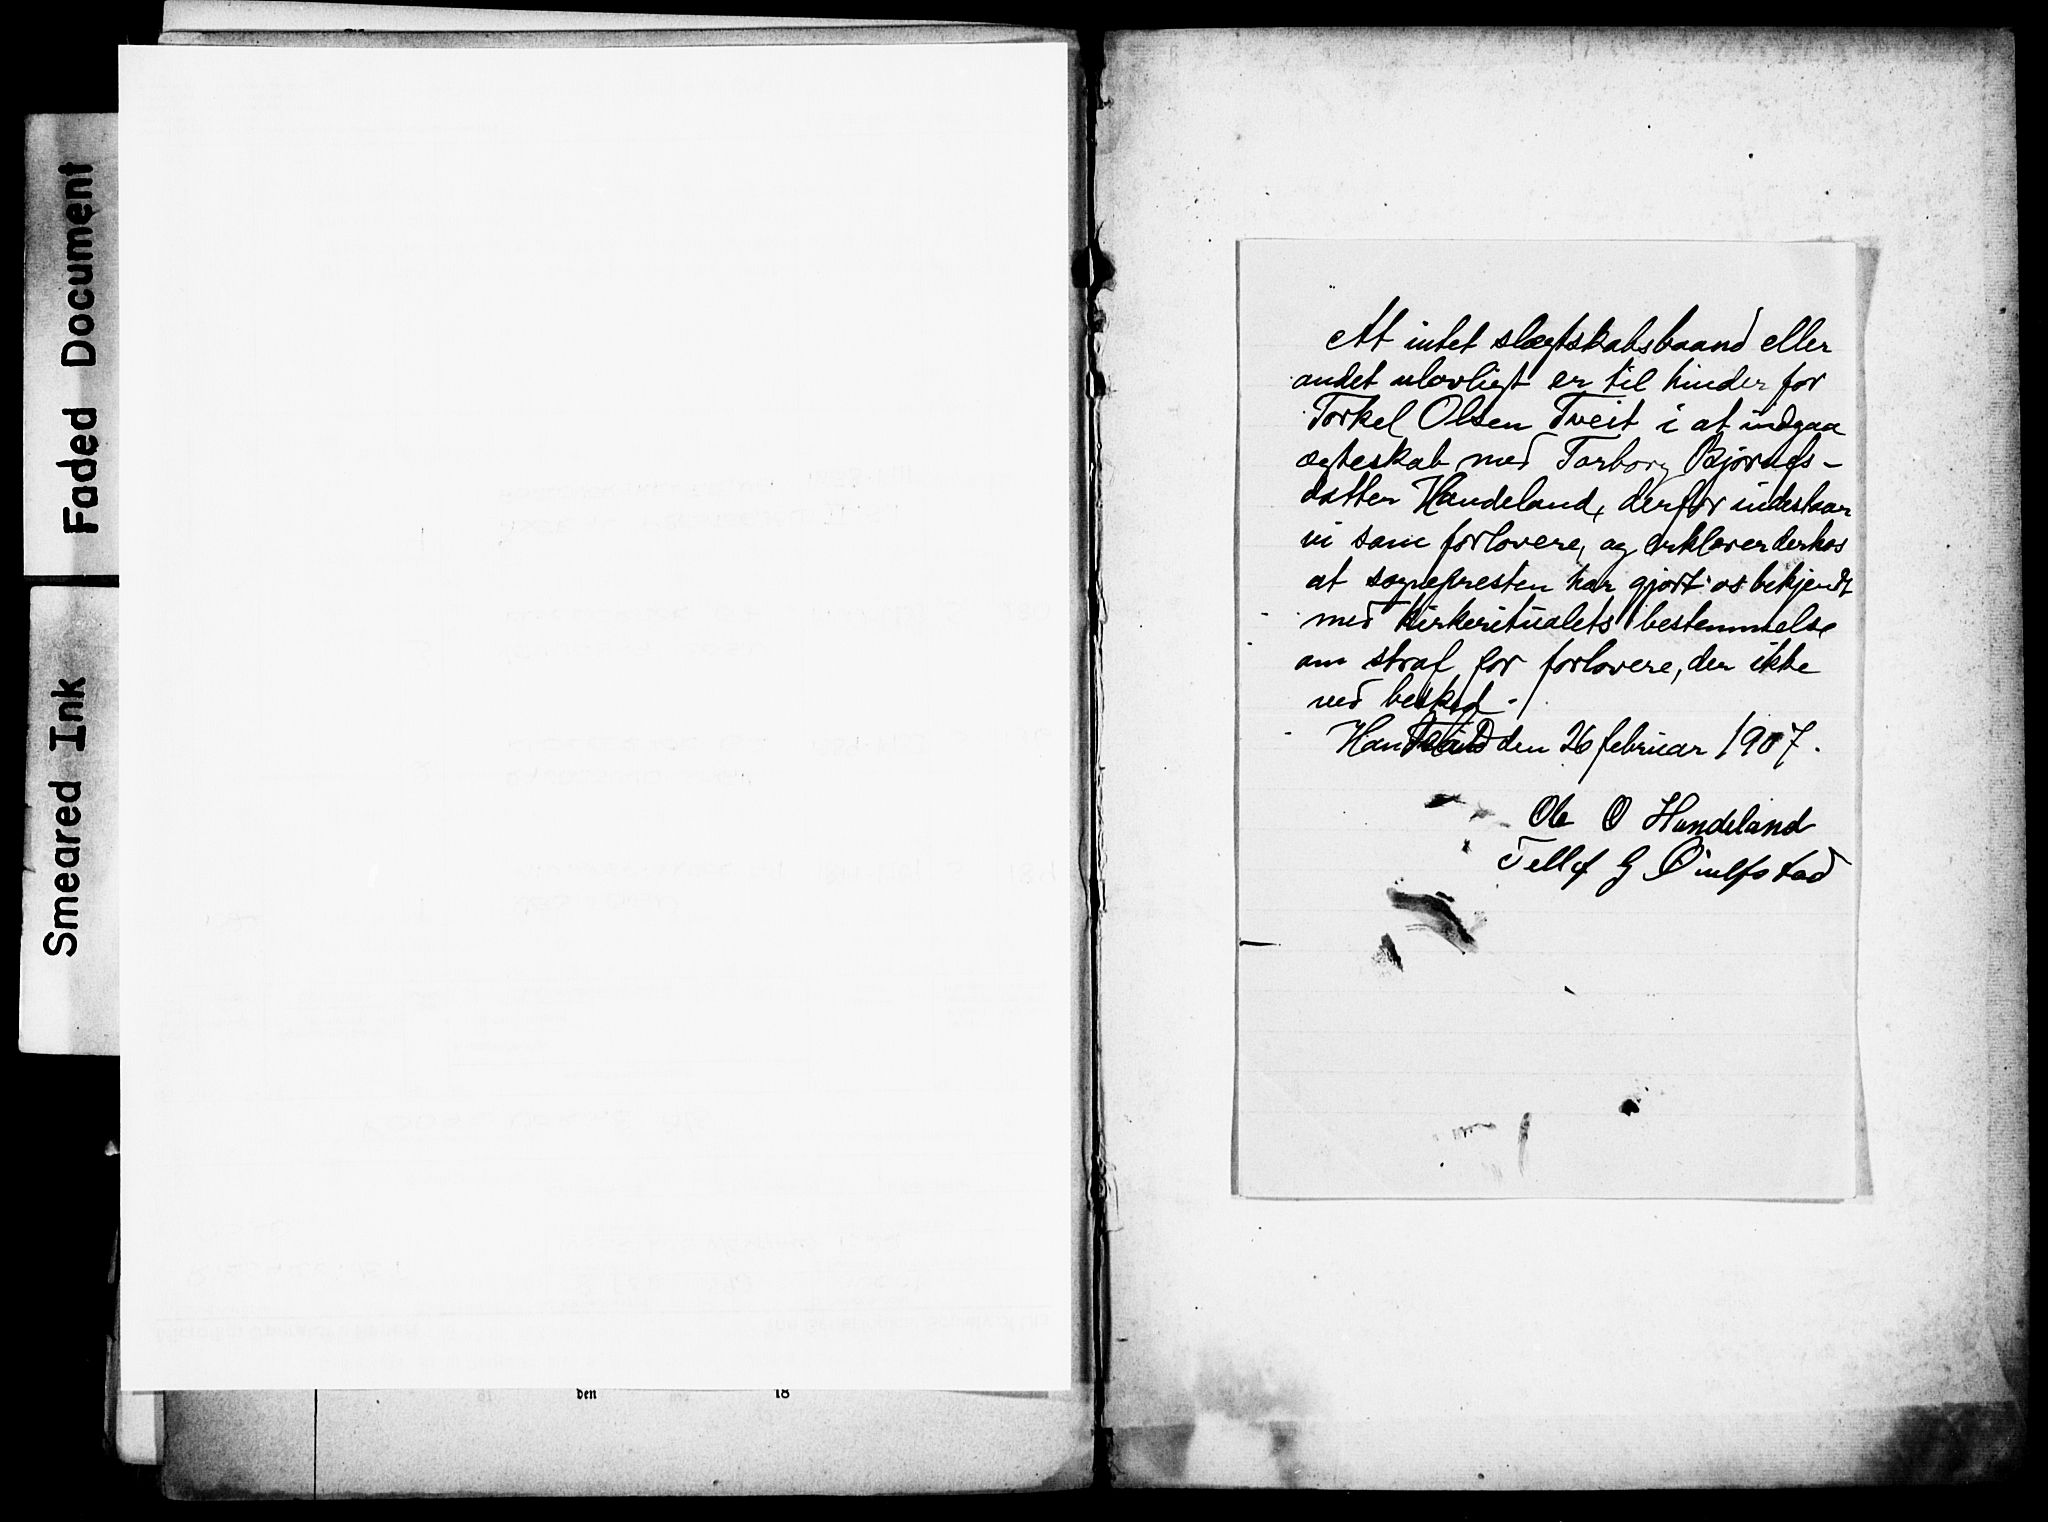 Faded Document
Smeared Ink
den 18
At intet slægtskabsbaand eller
andet ulovligt er til hinder for
Torkel Olsen Tveit i at indgaa
ægteskab med Torborg Bjørnds-
datter Handeland, derfor indestaar
vi som forlovere, og erklærer derhos
at sognepresten har gjort os bekjendt
med kirkeritualets bestemmelse
om straf for forlovere, der ikke
ved besked.
Handeland den 26 februar 1907.
Ole O Handeland
Tellef G